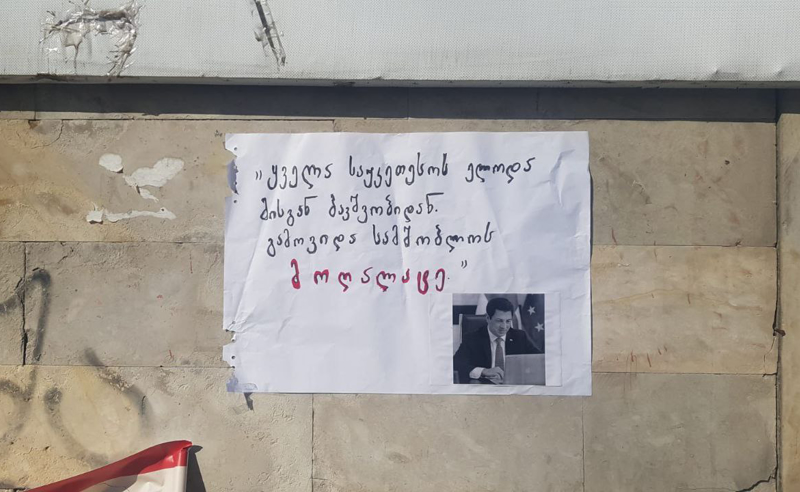 "ყველა საუკეთესოს ელოდა
მისგან ბავშვობიდან.
გამოვიდა სამშობლოს
მოღალატე."